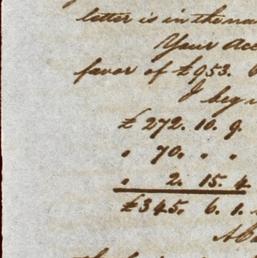 letter is in the
Your Acc
favor of £953.
I beg
£ 272. 10. 9.
" 70. " "
" 2. 15. 4.
£345. 6. 1.